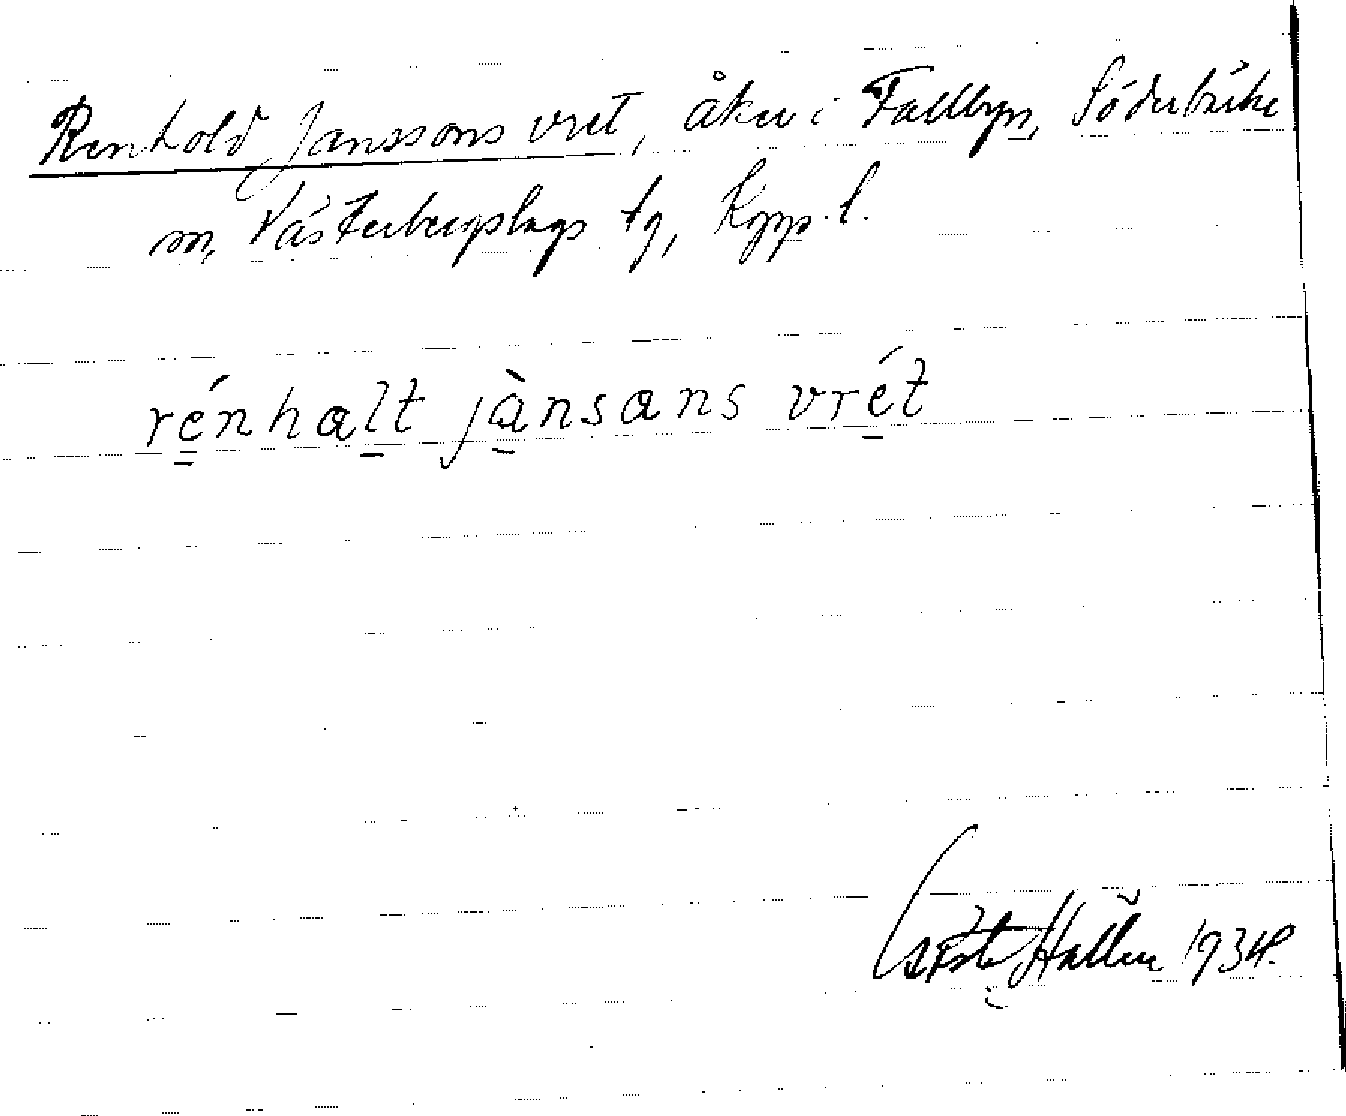 Renhold Janssons vret, åker i Fallbyn, Söderbärke
sn, Västerbergslags tg, Kopp. l.
rénhalt jànsans vrét
Gösta Hallén 1934.